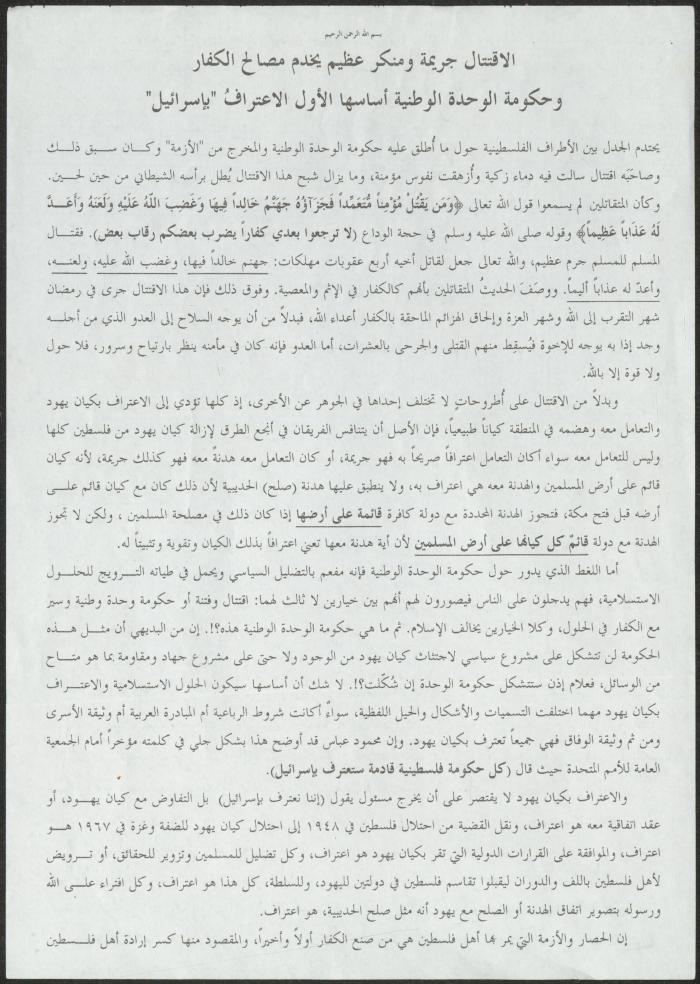 بسم الله الرحمن الرحيم
الاقتتال جريمة ومنكر عظيم يخدم مصالح الكفار
وحكومة الوحدة الوطنية أساسها الأول الاعترافُ "بإسرائيل"
يحتدم الجدل بين الأطراف الفلسطينية حول ما أُطلق عليه حكومة الوحدة الوطنية والمخرج من "الأزمة" وكان سبق ذلك
وصاحَبه اقتتال سالت فيه دماء زكية وأُزهقت نفوس مؤمنة، وما يزال شبح هذا الاقتتال يُطل برأسه الشيطاني من حين لحين.
وكأن المتقاتلين لم يسمعوا قول الله تعالى ﴿وَمَن يَقْتُلْ مُؤْمِناً مُّتَعَمِّداً فَجَزَآؤُهُ جَهَنَّمُ خَالِداً فِيهَا وَغَضِبَ اللّهُ عَلَيْهِ وَلَعَنَهُ وَأَعَدَّ
لَهُ عَذَاباً عَظِيماً﴾ وقوله صلى الله عليه وسلم في حجة الوداع (لا ترجعوا بعدي كفاراً يضرب بعضكم رقاب بعض). فقتال
المسلم للمسلم جرم عظيم، والله تعالى جعل لقاتل أخيه أربع عقوبات مهلكات: جهنم خالداً فيها، وغضب الله عليه، ولعنه،
وأعدّ له عذاباً أليماً. ووصَفَ الحديثُ المتقاتلين بأنهم كالكفار في الإثم والمعصية. وفوق ذلك فإن هذا الاقتتال جرى في رمضان
شهر التقرب إلى الله وشهر العزة وإلحاق الهزائم الماحقة بالكفار أعداء الله، فبدلاً من أن يوجه السلاح إلى العدو الذي من أجله
وجد إذا به يوجه للإخوة فيُسقِط منهم القتلى والجرحى بالعشرات، أما العدو فإنه كان في مأمنه ينظر بارتياح وسرور، فلا حول
ولا قوة إلا بالله.
وبدلاً من الاقتتال على أُطروحاتٍ لا تختلف إحداها في الجوهر عن الأخرى، إذ كلها تؤدي إلى الاعتراف بكيان يهود
والتعامل معه وهضمه في المنطقة كياناً طبيعياً، فإن الأصل أن يتنافس الفريقان في أنجع الطرق لإزالة كيان يهود من فلسطين كلها
وليس للتعامل معه سواء أكان التعامل اعترافاً صريحاً به فهو جريمة، أو كان التعامل معه هدنةً معه فهو كذلك جريمة، لأنه كيان
قائم على أرض المسلمين والهدنة معه هي اعتراف به، ولا ينطبق عليها هدنة (صلح) الحديبية لأن ذلك كان مع كيان قائم على
أرضه قبل فتح مكة، فتجوز الهدنة المحددة مع دولة كافرة قائمة على أرضها إذا كان ذلك في مصلحة المسلمين ، ولكن لا تجوز
الهدنة مع دولة قائمٌ كل كيانها على أرض المسلمين لأن أية هدنة معها تعني اعترافاً بذلك الكيان وتقوية وتثبيتاً له.
أما اللغط الذي يدور حول حكومة الوحدة الوطنية فإنه مفعم بالتضليل السياسي ويحمل في طياته الترويج للحلول
الاستسلامية، فهم يدجلون على الناس فيصورون لهم أنهم بين خيارين لا ثالث لهما: اقتتال وفتنة أو حكومة وحدة وطنية وسير
مع الكفار في الحلول، وكلا الخيارين يخالف الإسلام. ثم ما هي حكومة الوحدة الوطنية هذه؟!. إن من البديهي أن مثل هذه
الحكومة لن تتشكل على مشروع سياسي لاجتثاث كيان يهود من الوجود ولا حتى على مشروع جهاد ومقاومة بما هو متاح
من الوسائل، فعلام إذن ستتشكل حكومة الوحدة إن شُكّلت؟!. لا شك أن أساسها سيكون الحلول الاستسلامية والاعتراف
بكيان يهود مهما اختلفت التسميات والأشكال والحيل اللفظية، سواءٌ أكانت شروط الرباعية أم المبادرة العربية أم وثيقة الأسرى
ومن ثم وثيقة الوفاق فهي جميعاً تعترف بكيان يهود. وإن محمود عباس قد أوضح هذا بشكل جلي في كلمته مؤخراً أمام الجمعية
العامة للأمم المتحدة حيث قال (كل حكومة فلسطينية قادمة ستعترف بإسرائيل).
والاعتراف بكيان يهود لا يقتصر على أن يخرج مسئول يقول (إننا نعترف بإسرائيل) بل التفاوض مع كيان يهود، أو
عقد اتفاقية معه هو اعتراف، ونقل القضية من احتلال فلسطين في ١٩٤٨ إلى احتلال كيان يهود للضفة وغزة في ١٩٦٧ هو
اعتراف، والموافقة على القرارات الدولية التي تقر بكيان يهود هو اعتراف، وكل تضليل للمسلمين وتزوير للحقائق، أو ترويض
لأهل فلسطين باللف والدوران ليقبلوا تقاسم فلسطين في دولتين لليهود، وللسلطة، كل هذا هو اعتراف، وكل افتراء على الله
ورسوله بتصوير اتفاق الهدنة أو الصلح مع يهود أنه مثل صلح الحديبية، هو اعتراف.
إن الحصار والأزمة التي يمر بها أهل فلسطين هي من صنع الكفار أولاً وأخيراً، والمقصود منها كسر إرادة أهل فلسطين